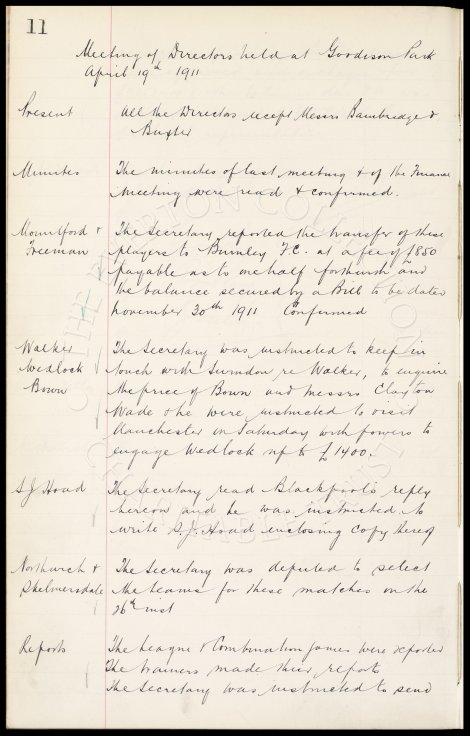 11
Meeting of Directors held at Goodison Park
April 19th 1911
Present All the Directors except Messrs Bainbridge &
Baxter
Minutes The minutes of last meeting & of the Finance
Meeting were read & confirmed.
Mountford & The Secretary reported the transfer of these
Freeman players to Burnley F.C. at a fee of £850
payable as to one half forthwith and
the balance secured by a Bill to be dated
November 30th 1911 Confirmed
Walker The Secretary was instructed to keep in
Wedlock touch with Swindon re Walker, to enquire
Bown the price of Bown and Messrs Clayton
Wade & he were instructed to visit
Manchester on Saturday with powers to
engage Wedlock up to £1400.
S J Hoad The Secretary read Blackpool's reply
hereon and he was instructed to
write S.J. Hoad enclosing copy thereof
Northwich & The Secretary was deputed to select
Skelmersdale the teams for these matches on the
26th inst
Reports The League & Combination games were reported
The trainers made their reports
The Secretary was instructed to send
THE EVERTON COLLECTION